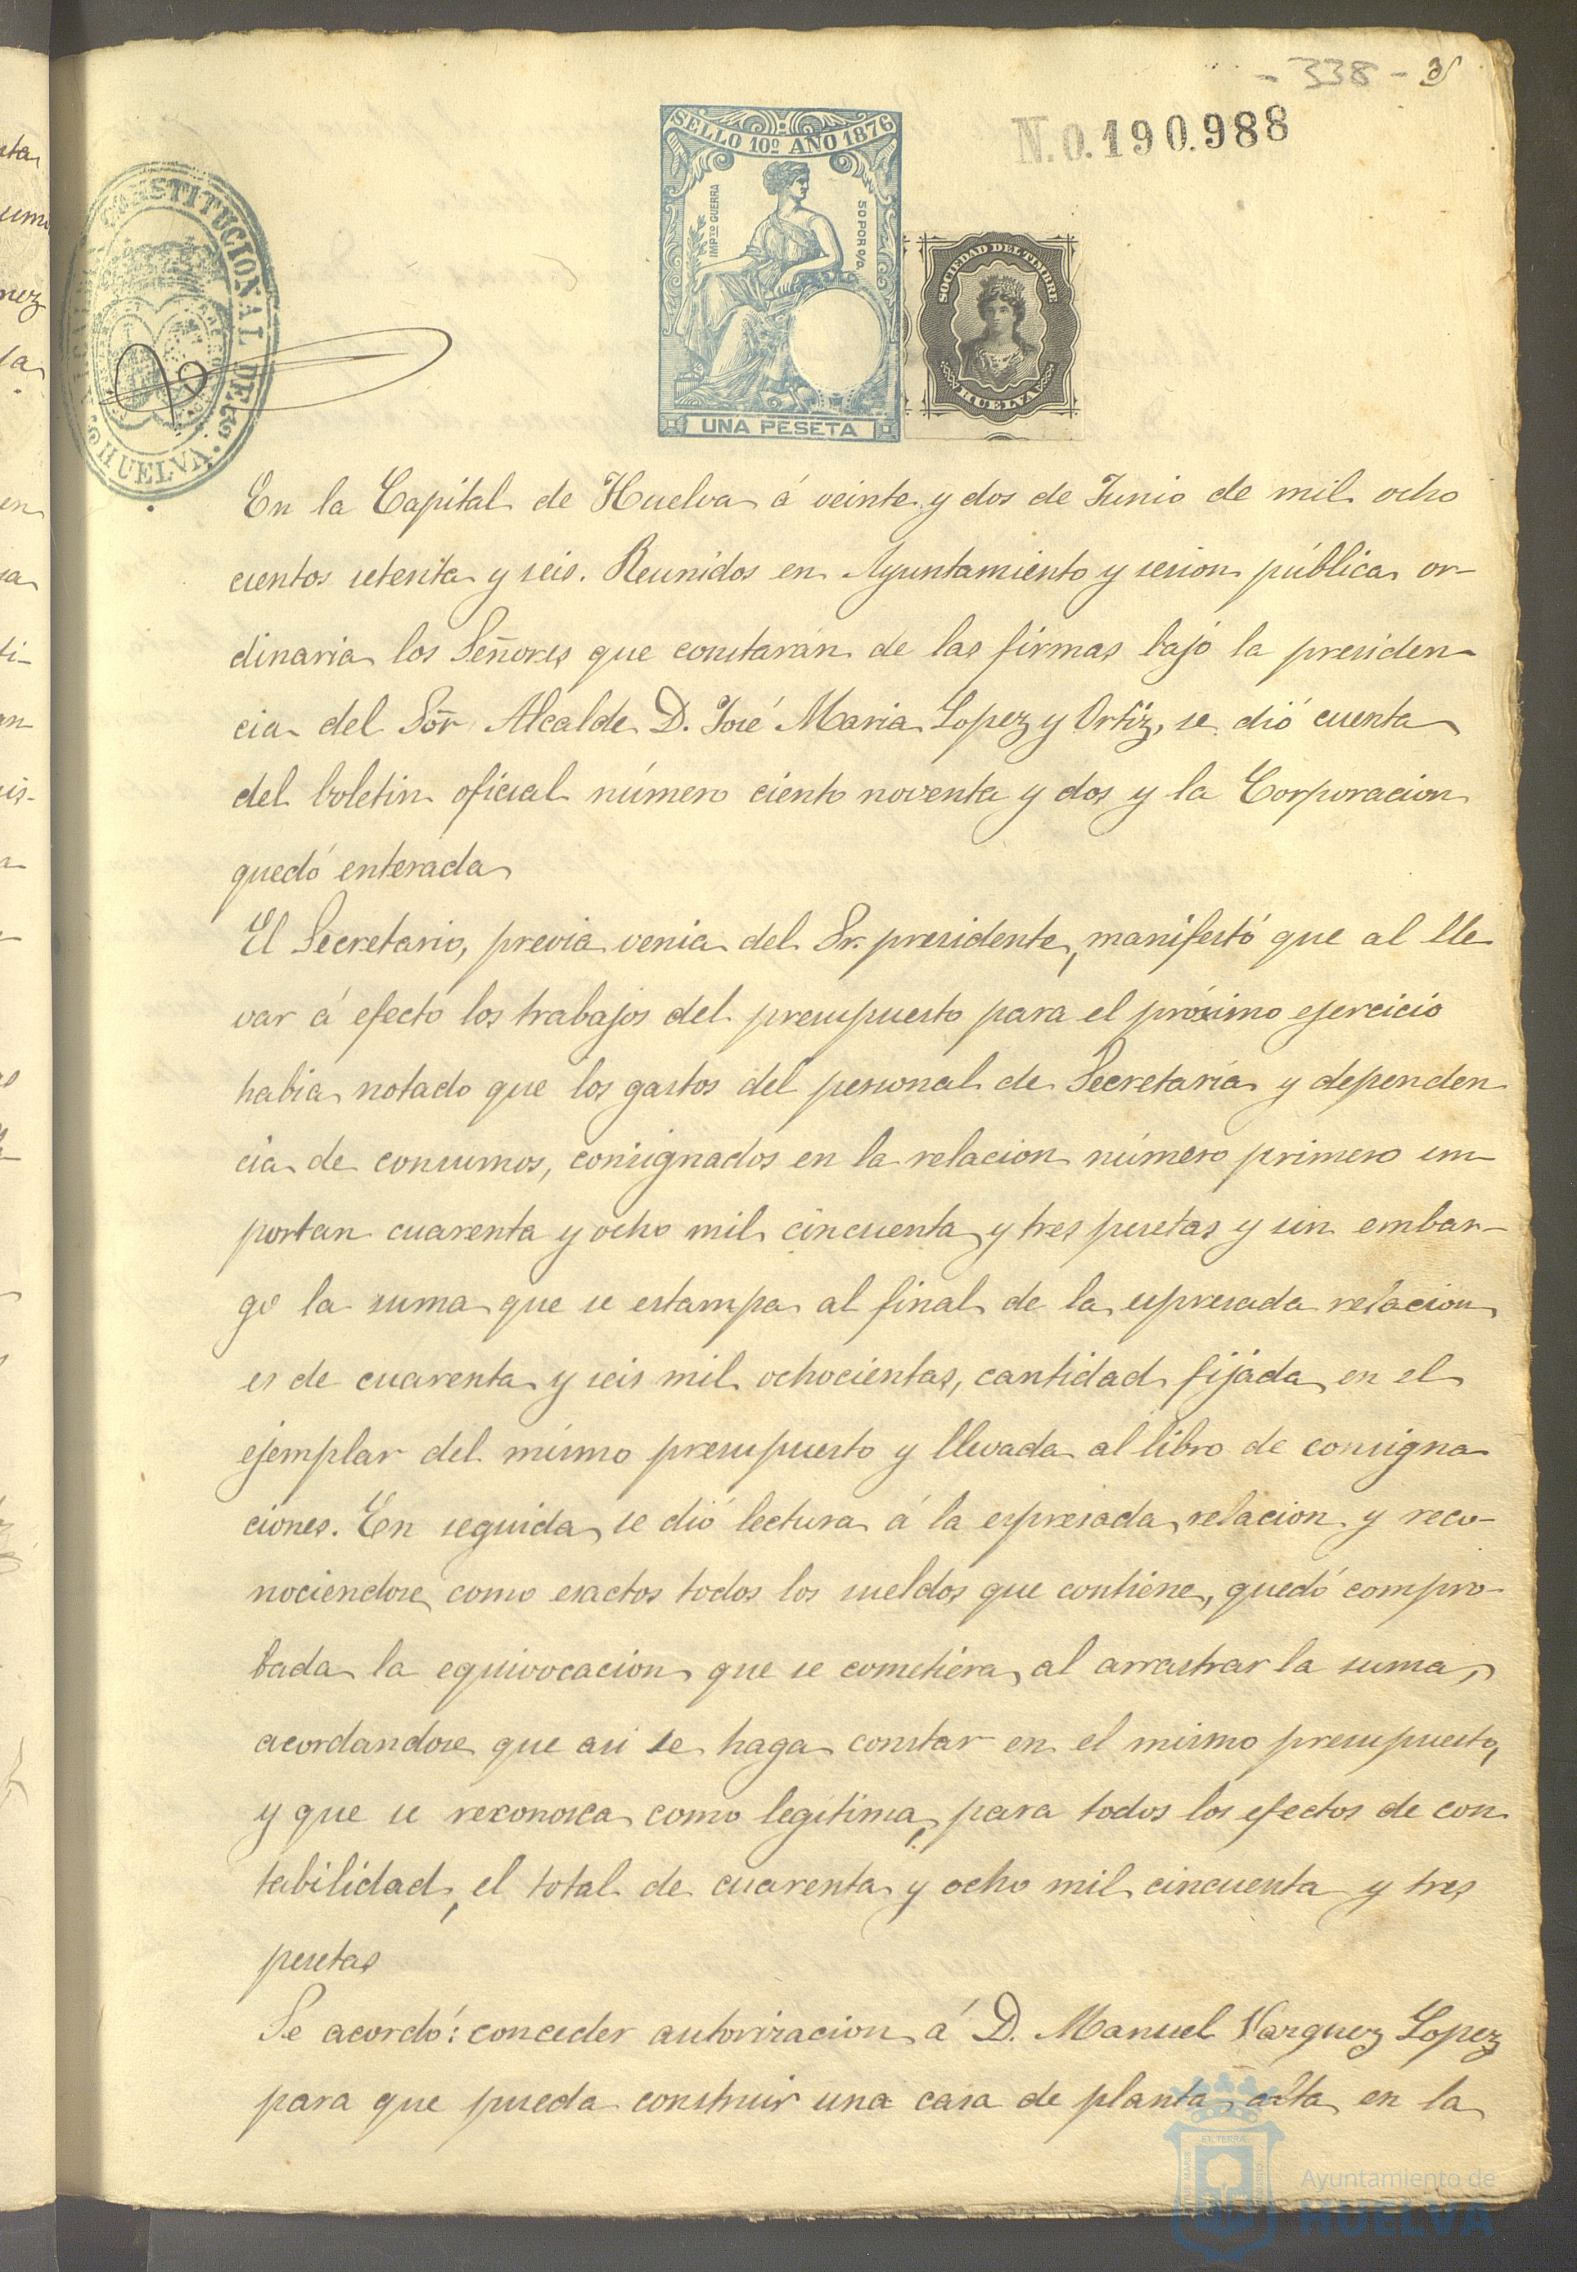 - 338 -
N.0.190.988
SELLO 10º AÑO 1876
IMPTO GUERRA
50 POR 0/0.
UNA PESETA
SOCIEDAD DEL TIMBRE
HUELVA
CONSTITUCIONAL DE
HUELVA
En la Capital de Huelva á veinte y dos de Junio de mil ocho
cientos setenta y seis. Reunidos en Ayuntamiento y sesion pública or-
dinaria los Señores que constarán de las firmas bajo la presiden-
cia del Sõr Alcalde D. José Maria Lopez y Ortiz, se dió cuenta
del boletin oficial número ciento noventa y dos y la Corporacion
quedó enterada
El Secretario, previa venia del Sr. presidente, manifestó que al lle
var á efecto los trabajos del presupuesto para el próximo ejercicio
habia notado que los gastos del personal de Secretaría y dependen
cia de consumos, consignados en la relacion número primero im-
portan cuarenta y ocho mil cincuenta y tres pesetas y sin embar-
go la suma que se estampa al final de la espresada relacion
es de cuarenta y seis mil ochocientas, cantidad fijada en el
ejemplar del mismo presupuesto y llevada al libro de consigna
ciones. En seguida se dió lectura á la espresada relacion y reco-
nociendose como esactos todos los sueldos que contiene, quedó compro-
bada la equivocacion que se cometiera al arrastrar la suma,
acordandose que asi se haga constar en el mismo presupuesto,
y que se reconosca como legítima, para todos los efectos de con
tabilidad, el total de cuarenta y ocho mil cincuenta y tres
pesetas
Se acordó: conceder autorizacion á D. Manuel Vazquez Lopez
para que pueda construir una casa de planta alta en la
Ayuntamiento de
HUELVA